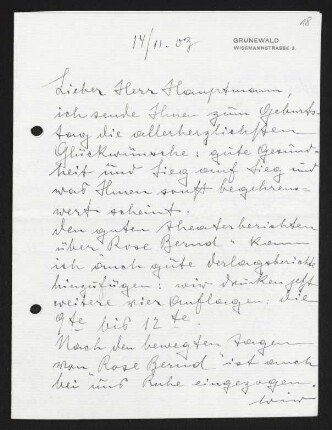 18
14/11.03
GRUNEWALD
WISSMANNSTRASSE 3.
Lieber Herr Hauptmann,
ich sende Ihnen zum Geburts-
tag die allerherzlichsten
Glückwünsche: gute Gesund-
heit und Sieg auf Sieg und
was Ihnen sonst begehrens-
wert scheint.
Den guten Theaterberichten
über „Rose Bernd“ kann
ich auch gute Verlagsberichte
hinzufügen: wir drucken jetzt
weitere vier Auflagen: die
9te bis 12te.
Nach den bewegten Tagen
von „Rose Bernd“ ist auch
bei uns Ruhe eingezogen.
Wir